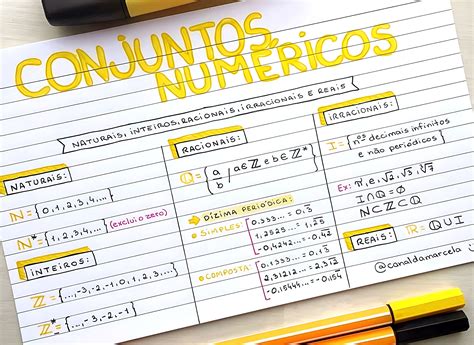 CONJUNTOS NUMÉRICOS
NATURAIS, INTEIROS, RACIONAIS, IRRACIONAIS E REAIS
NATURAIS:
ℕ = {0,1,2,3,4,...}
ℕ* = {1,2,3,4,...} (exclui o zero)
INTEIROS:
ℤ = {...,-3,-2,-1,0,1,2,3,...}
ℤ* = {...,-3,-2,-1,
RACIONAIS:
ℚ = {a/b / a∈ℤ e b∈ℤ*}
DÍZIMA PERIÓDICA:
SIMPLES: 0,333... = 0,3̅
1,2525... = 1,2̅5̅
-0,4242... = -0,4̅2̅
COMPOSTA: 0,1333... = 0,13̅
2,31212... = 2,31̅2̅
-0,15444... = -0,154̅
IRRACIONAIS:
I = {nºs decimais infinitos
e não periódicos}
Ex: π, e, √2, √3, √7
I∩ℚ = Ø
ℕ⊂ℤ⊂ℚ
REAIS: ℝ = ℚ∪I
@canaldamarcela